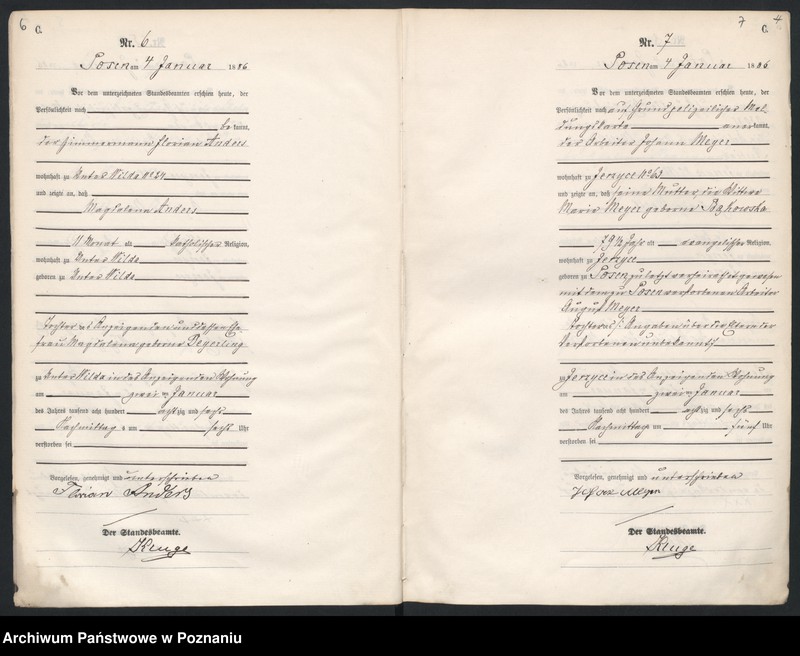 6
C.
Nr. 6
Posen am 4 Januar 1886
Vor dem unterzeichneten Standesbeamten erschien heute, der
Persönlichkeit nach
be kannt,
der Zimmermann Florian Anders
wohnhaft zu Unter Wilda No 24
und zeigte an, daß
Magdalena Anders
11 Monat alt katholischer Religion,
wohnhaft zu Unter Wilda
geboren zu Unter Wilda
Tochter des Anzeigenden und dessen Ehe
frau Magdalena geborne Beyerling
zu Unter Wilda in des Anzeigenden Wohnung
am zwei ten Januar
des Jahres tausend acht hundert achtzig und sechs
Nachmittag s um sechs Uhr
verstorben sei
Vorgelesen, genehmigt und unterschrieben
Florian Anders
Der Standesbeamte.
Kluge
7
C.
4
Nr. 7
Posen am 4 Januar 1886
Vor dem unterzeichneten Standesbeamten erschien heute, der
Persönlichkeit nach auf Grund polizeilicher Mel
dungskarte anerkannt,
der Arbeiter Johann Meyer
wohnhaft zu Jerzyce No 63
und zeigte an, daß seine Mutter, die Wittwe
Marie Meyer geborne Bąkowska
79 1/2 Jahr alt evangelischer Religion,
wohnhaft zu Jerzyce
geboren zu Posen zuletzt verheirathet gewesen
mit dem zu Posen verstorbenen Arbeiter
August Meyer
Tochter Angaben über die Eltern der
Verstorbenen unbekannt
zu Jerzyce in des Anzeigenden Wohnung
am zwei ten Januar
des Jahres tausend acht hundert achtzig und sechs
Nachmittags um fünf Uhr
verstorben sei
Vorgelesen, genehmigt und unterschrieben
Meyer
Der Standesbeamte.
Kluge
Archiwum Państwowe w Poznaniu